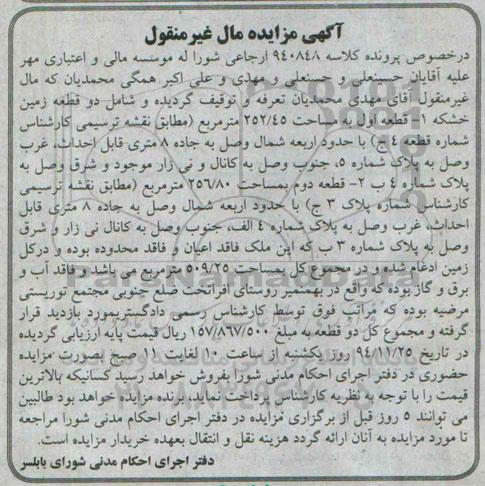 آگهی مزایده مال غیرمنقول
درخصوص پرونده کلاسه ۹۴۰۸۴۸ ارجاعی شورا له موسسه مالی و اعتباری مهر
علیه آقایان حسنعلی و حسنعلی و مهدی و علی اکبر همگی محمدیان که مال
غیرمنقول آقای مهدی محمدیان تعرفه و توقیف گردیده و شامل دو قطعه زمین
خشکه ۱- قطعه اول به مساحت ۲۵۲/۴۵ مترمربع (مطابق نقشه ترسیمی کارشناس
شماره قطعه ٤ ج) با حدود اربعه شمال وصل به جاده ۸ متری قابل احداث، غرب
وصل به پلاک شماره ۵، جنوب وصل به کانال و نی زار موجود و شرق وصل به
پلاک شماره ٤ ب ۲- قطعه دوم بمساحت ۲۵٦/۸۰ مترمربع (مطابق نقشه ترسیمی
کارشناس شماره پلاک ۳ ج) با حدود اربعه شمال وصل به جاده ۸ متری قابل
احداث، غرب وصل به پلاک شماره ٤ الف، جنوب وصل به کانال نی زار و شرق
وصل به پلاک شماره ۳ ب که این ملک فاقد اعیان و فاقد محدوده بوده و درکل
زمین ادغام شده و در مجموع کل بمساحت ۵۰۹/۲۵ مترمربع می باشد و فاقد آب و
برق و گاز بوده که واقع در بهنمیر روستای فراتخت ضلع جنوبی مجتمع توریستی
مرضیه بوده که مراتب فوق توسط کارشناس رسمی دادگستریمورد بازدید قرار
گرفته و مجموع کل دو قطعه به مبلغ ۱۵۷/۸٦۷/۵۰۰ ریال قیمت پایه ارزیابی گردیده
در تاریخ ۹٤/۱۱/۲۵ روز یکشنبه از ساعت ۱۰ لغایت ۱۱ صبح بصورت مزایده
حضوری در دفتر اجرای احکام مدنی شورا بفروش خواهد رسید کسانیکه بالاترین
قیمت را با توجه به نظریه کارشناس پرداخت نماید، برنده مزایده خواهد بود طالبین
می توانند ۵ روز قبل از برگزاری مزایده در دفتر اجرای احکام مدنی شورا مراجعه
تا مورد مزایده به آنان ارائه گردد هزینه نقل و انتقال بعهده خریدار مزایده است.
دفتر اجرای احکام مدنی شورای بابلسر